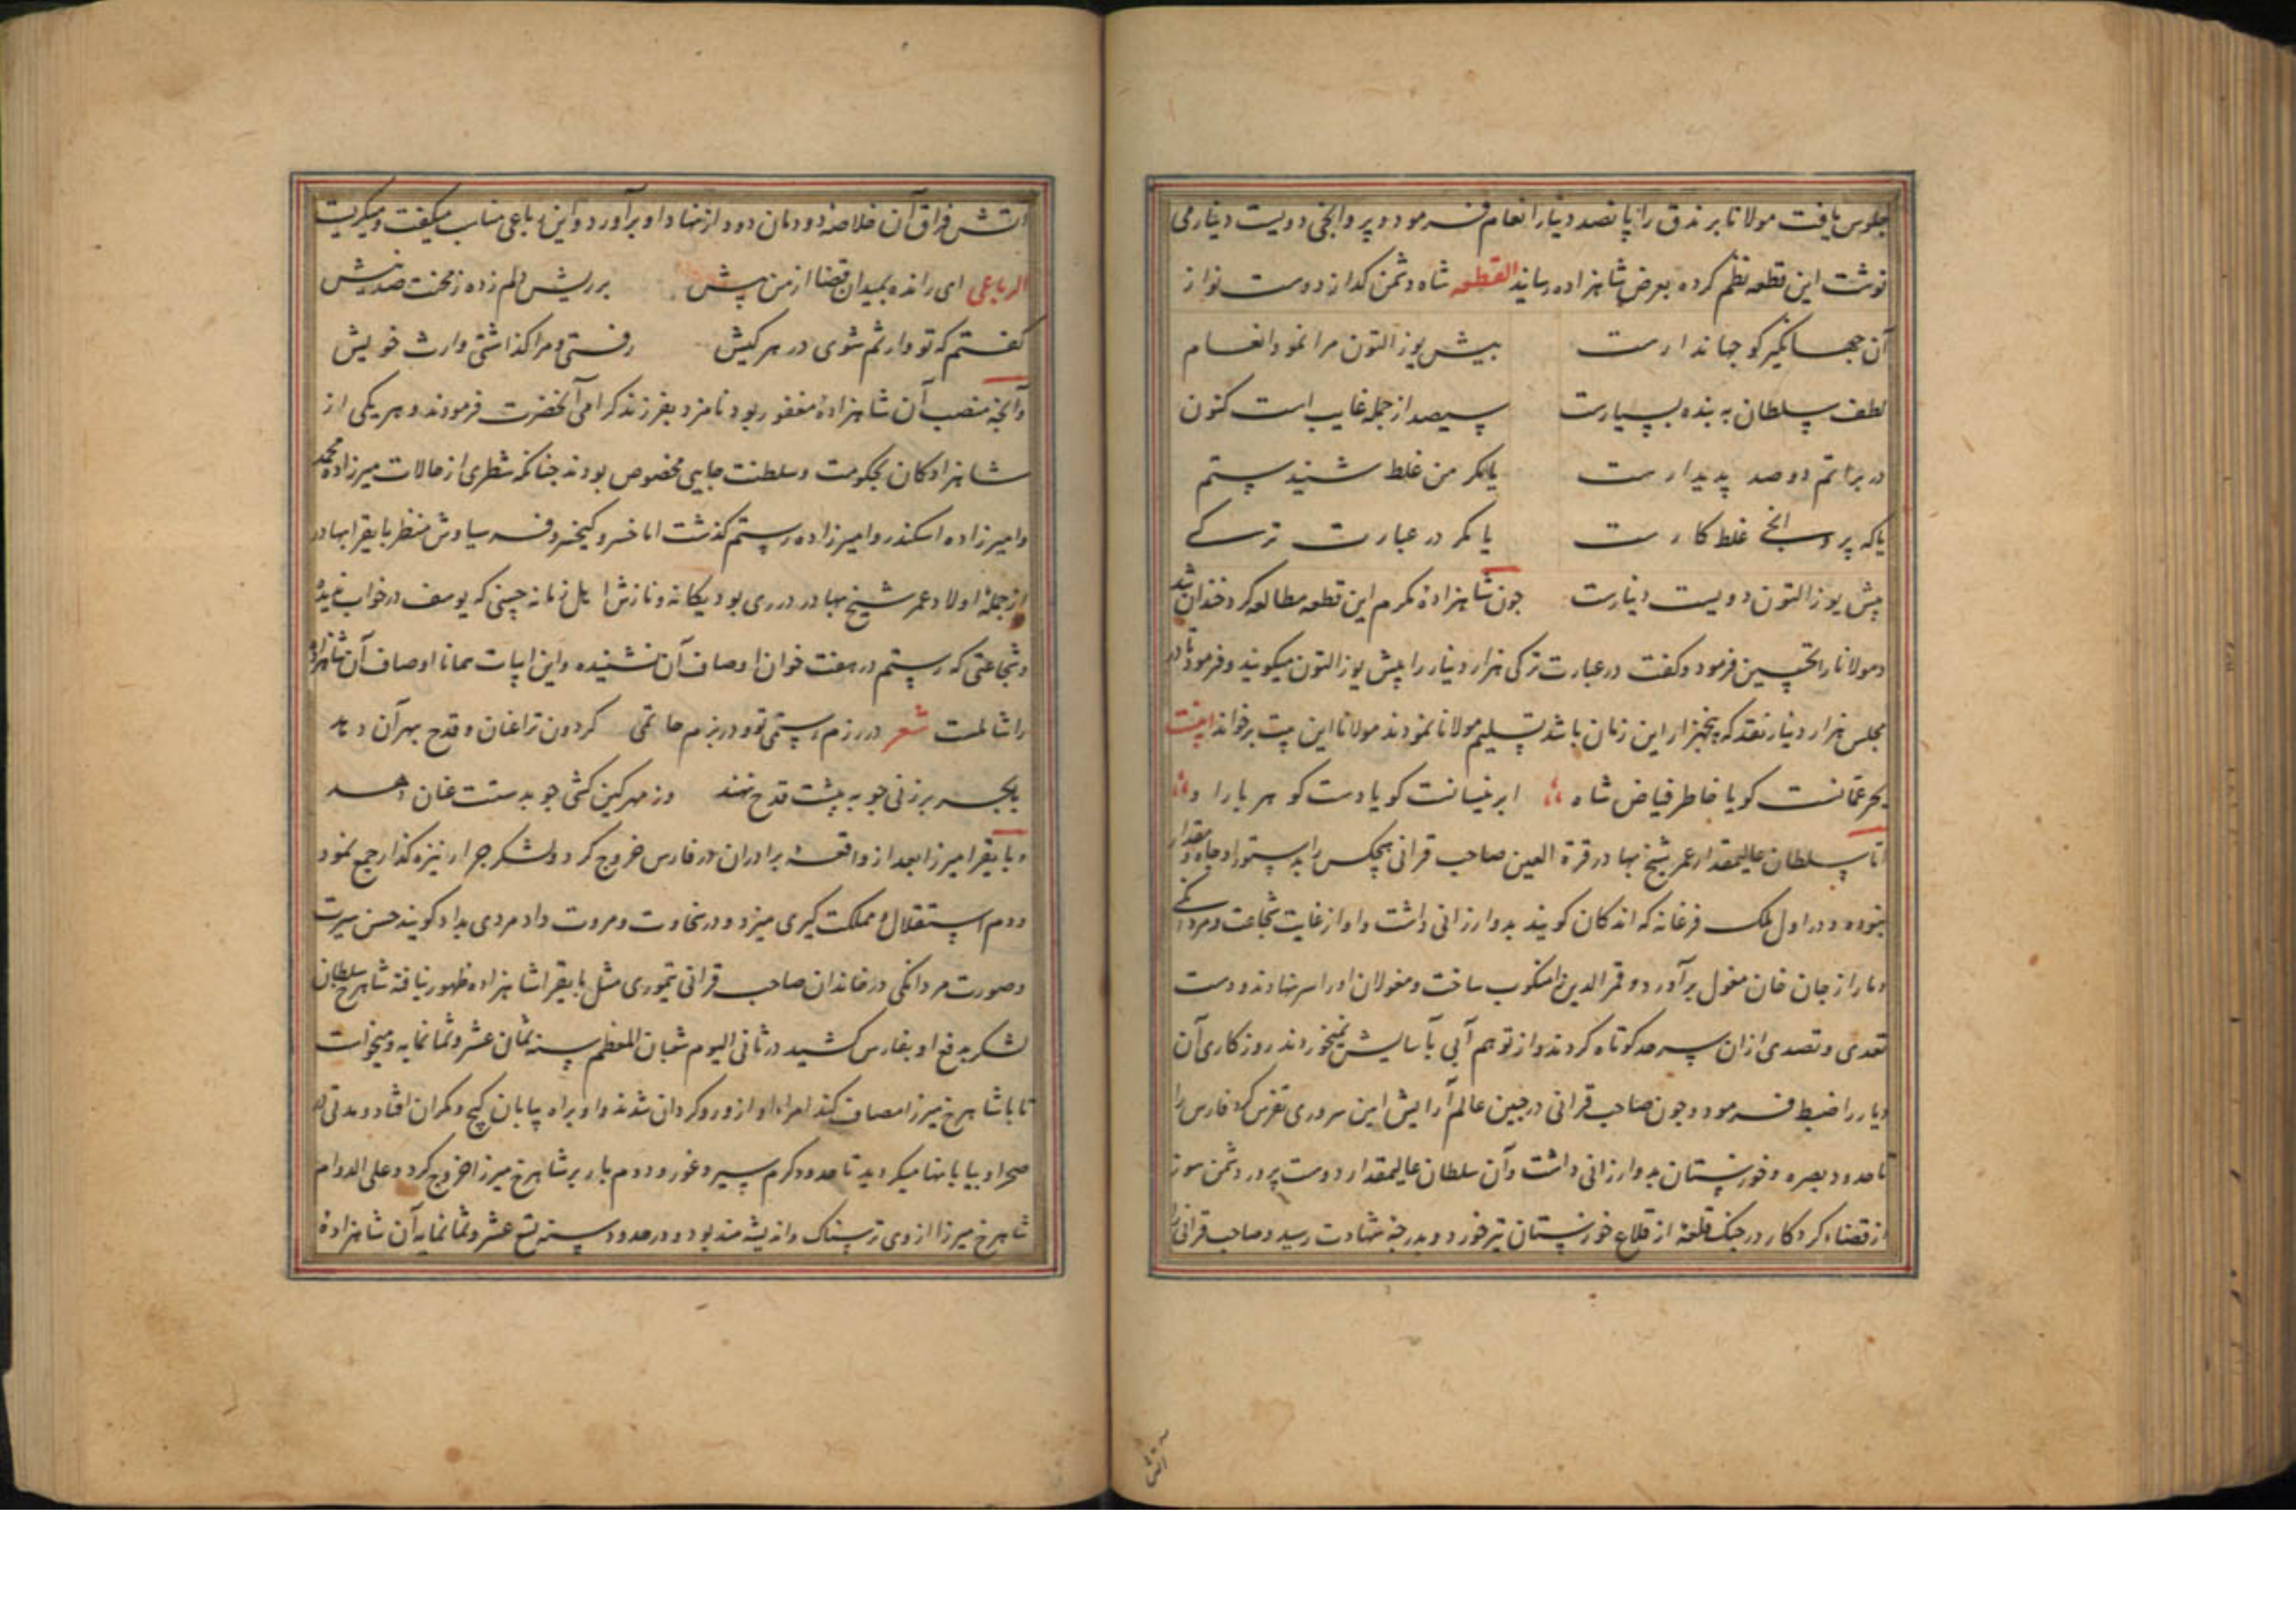 جلوس یافت مولانا برندق را پانصد دینار انعام فرمود و پروانچی دویست دینار می
نوشت این قطعه نظم کرده بعرض شاهزاده رسانید القطعه شاه دشمن کداز دوست نواز
آن جهانکیر کو جهاندارست بیش یوز التون مرا نمود انعام
لطف سلطان به بنده بسیارست سیصد از جمله غایب است کنون
در براتم دو صد پدیدارست یا مکر من غلط شنیدستم
یا که پروانچی غلط کارست یا مکر در عبارت ترکی
بیش یوز التون دویست دینارست جون شاهزادۀ مکرم این قطعه مطالعه کرد خندان شد
و مولانا را تحسین فرمود و کفت در عبارت ترکی هزار دینار را بیش یوز التون میکویند و فرمود تا در
مجلس هزار دینار نقد که پنجهزار این زمان باشد تسلیم مولانا نمودند مولانا این بیت برخواند
بحر عمانست کویا خاطر فیاض شاه ابر نیسانست کویا دست کوهر بار او
اما سلطان عالیمقدار عمر شیخ بهادر قرة العین صاحب قرانی هیچکس را بدستور او جاه و مقدار
نبوده و در اول ملک فرغانه که اندکان کویند بدو ارزانی داشت و او از غایت شجاعت و مردانکی
دمار از جان خان مغول برآورد و قمرالدین را منکوب ساخت و مغولان او را سر نهادند و دست
تعدی و تصدی ازان سرحد کوتاه کردند و از توهم آبی بآسایش نمیخوردند روزکاری آن
دیار را ضبط فرمود و جون صاحب قرانی در جبین عالم آرایش این سروری تفرس کرد فارس را
تا حدود بصره و خوزستان بدو ارزانی داشت و آن سلطان عالیمقدار دوست پرور دشمن سوز
از قضاء کردکار در جنک قلعۀ از قلاع خوزستان تیر خورد و بدرجۀ شهادت رسید و صاحب قرانی را
آتش فراق آن خلاصه دودمان دود از نهاد او برآورد و این رباعی مناسب میکفت و میکریست
الرباعی ای رانده بمیدان قضا از من پیش بر ریش دلم زده ز محنت صد نیش
کفتم که تو وارثم شوی در هر کیش رفتی و مرا کذاشتی وارث خویش
و آنچه منصب آن شاهزادۀ مغفور بود نامزد بفرزند کرامی آنحضرت فرمودند و هریکی از
شاهزادکان بحکومت و سلطنت جایی مخصوص بودند جنانکه شطری از حالات میرزاده محمد
و امیرزاده اسکندر و امیرزاده رستم کذشت اما خسرو کیخسرو فر سیاوش منظر بایقرا بهادر
از جمله اولاد عمر شیخ بهادر دری بود یکانه و نازش اهل زمانه حسنی که یوسف در خواب ندیدۀ
و شجاعتی که رستم در هفت خوان اوصاف آن نشنیده و این ابیات همانا اوصاف آن شاهزاده
را شاملست شعر در رزم رستمی تو و در بزم حاتمی کردون ترا عنان و قدح بهر آن دهد
و بایقرا میرزا بعد از واقعۀ برادران در فارس خروج کرد و لشکر جرار نیزه کذار جمع نمود
و دم استقلال و مملکت کیری میزد و در سخاوت و مروت داد مردی بداد کویند حسن سیرت
و صورت مردانکی در خاندان صاحب قرانی تیموری مثل بایقرا شاهزاده ظهور نیافته شاهرخ سلطان
لشکر بدفع او بفارس کشید در ثانی الیوم شعبان المعظم سنه ثمان عشر و ثمانمایه و میخواست
تا با شاهرخ میرزا مصاف کند امراء او ازو روکردان شدند و او براه بیابان کیج و مکران افتاد و مدتی در
صحرا و بیابانها میکردید تا حدود کرم سیر و غور و دوم بار بر شاهرخ میرزا خروج کرد و علی الدوام
شاهرخ میرزا از وی ترسناک و اندیشه مند بود و در حدود سنه تسع عشر و ثمانمایه آن شاهزادۀ